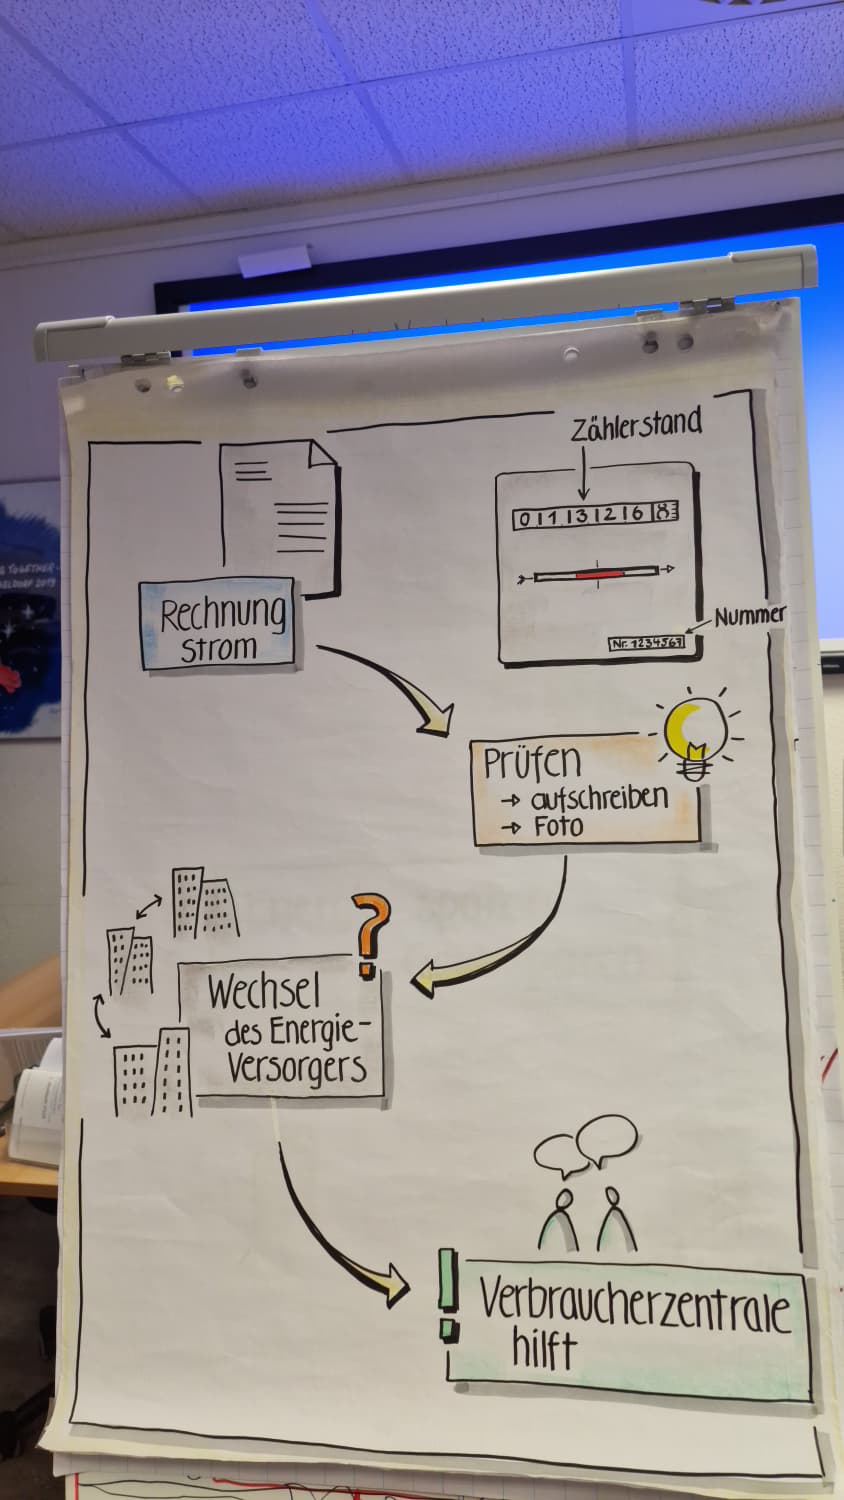 Zählerstand
0 1 1 1 3 1 2 1 6 8
Nr. 1234567
Nummer
Rechnung
Strom
Prüfen
→ aufschreiben
→ Foto
?
Wechsel
des Energie-
Versorgers
! Verbraucherzentrale
hilft